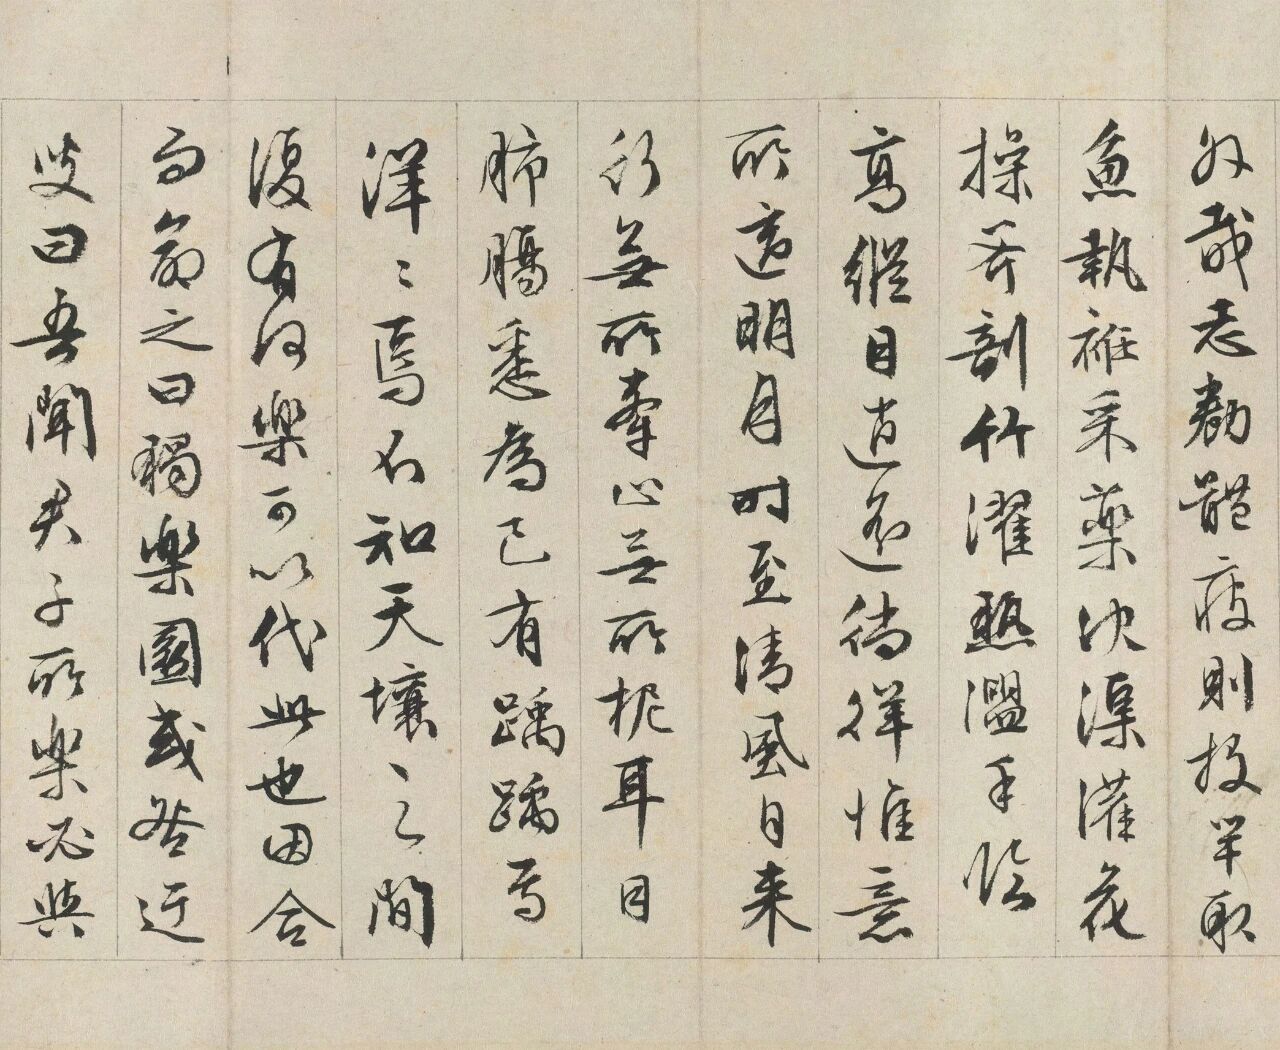 外哉志勌體疲則投竿取
魚執衽采藥決渠灌花
操斧剖竹濯熱盥手臨
高縱目逍遙徜徉惟意
所適明月時至清風自來
行無所牽止無所柅耳目
肺腸悉為己有踽踽焉
洋〻焉不知天壤之間
復有何樂可以代此也因合
而命之曰獨樂園或咎迂
叟曰吾聞君子所樂必與